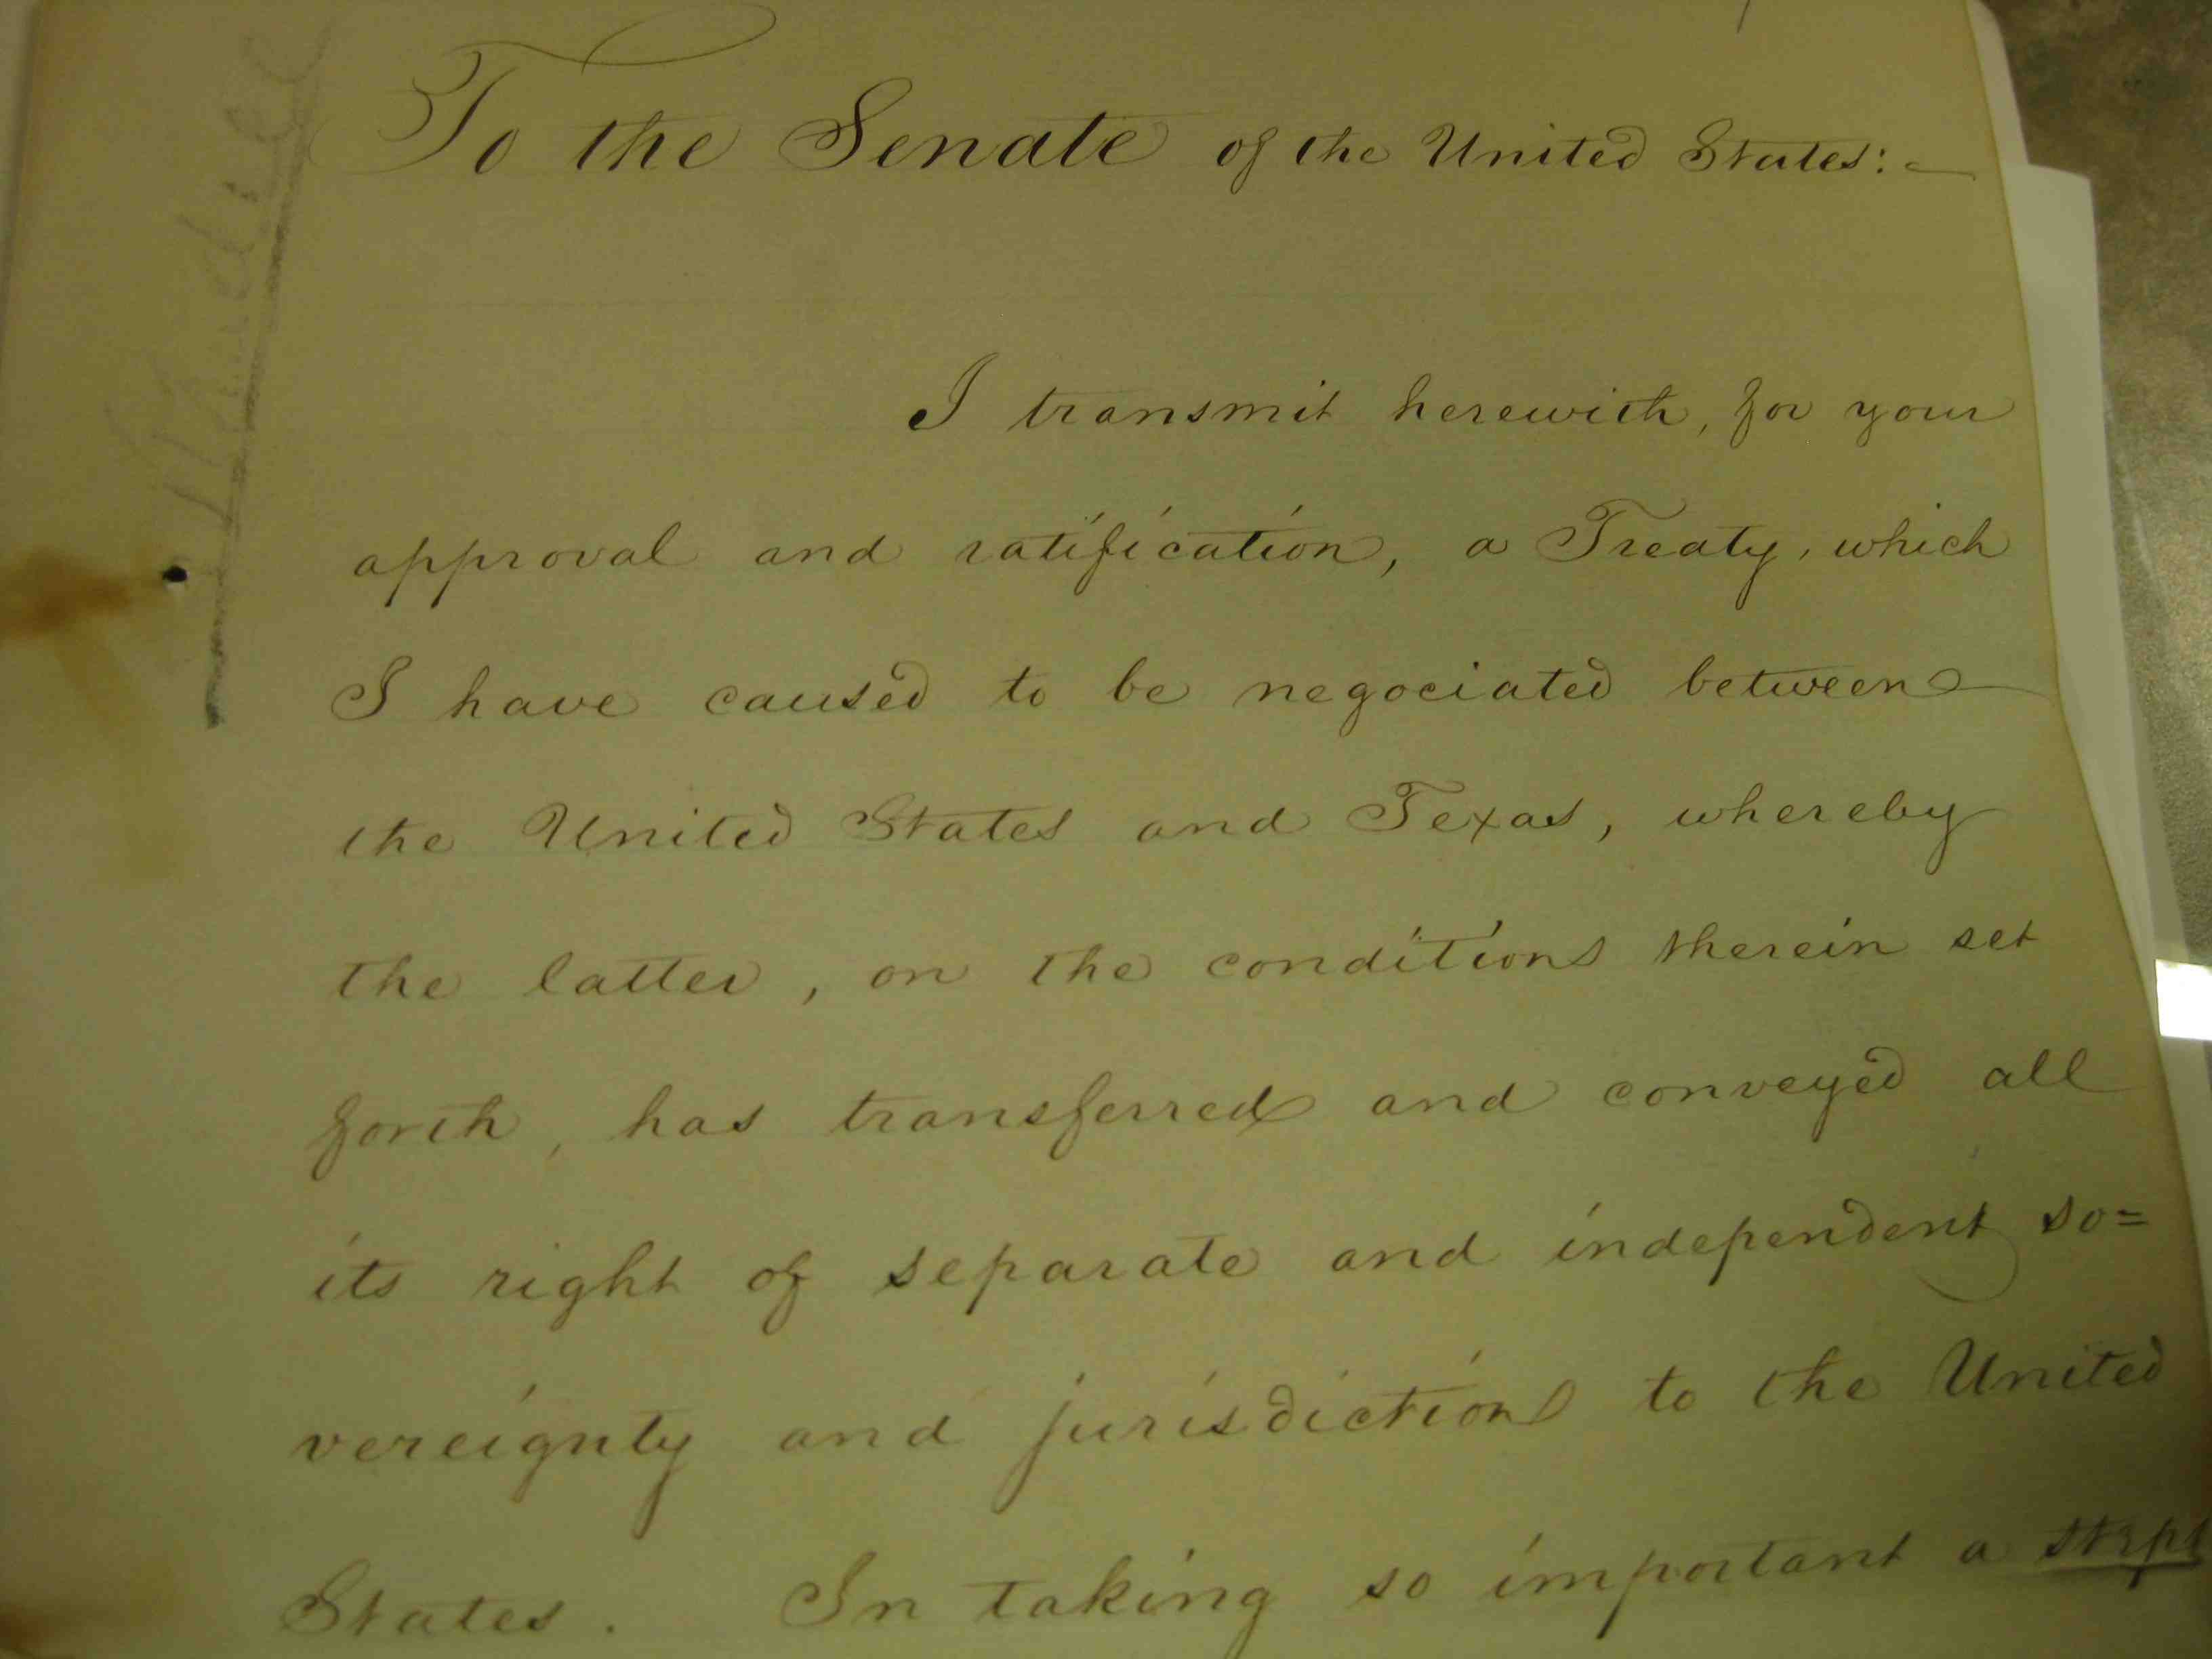 To the Senate of the United States:
I transmit herewith, for your
approval and ratification, a Treaty, which
I have caused to be negociated between
the United States and Texas, whereby
the latter, on the conditions therein set
forth, has transferred and conveyed all
its right of separate and independent so=
vereignty and jurisdiction to the United
States. In taking so important a step